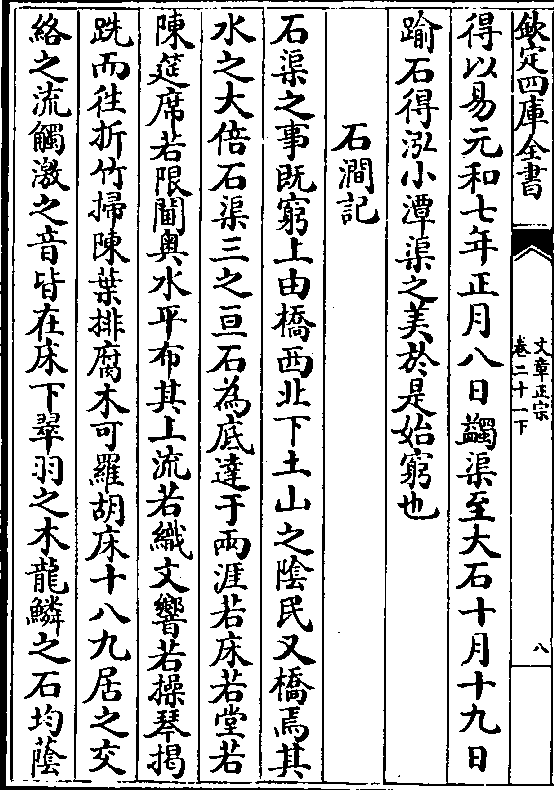 欽定四庫全書
文章正宗
卷二十一下
八
得以易元和七年正月八日蠲渠至大石十月十九日
踰石得泓小潭渠之美於是始窮也
石澗記
石渠之事既窮上由橋西北下土山之陰民又橋焉其
水之大倍石渠三之亘石為底達于兩涯若床若堂若
陳筵席若限閫奥水平布其上流若織文響若操琴揭
跣而往折竹掃陳葉排腐木可羅胡床十八九居之交
絡之流觸激之音皆在床下翠羽之木龍鱗之石均蔭